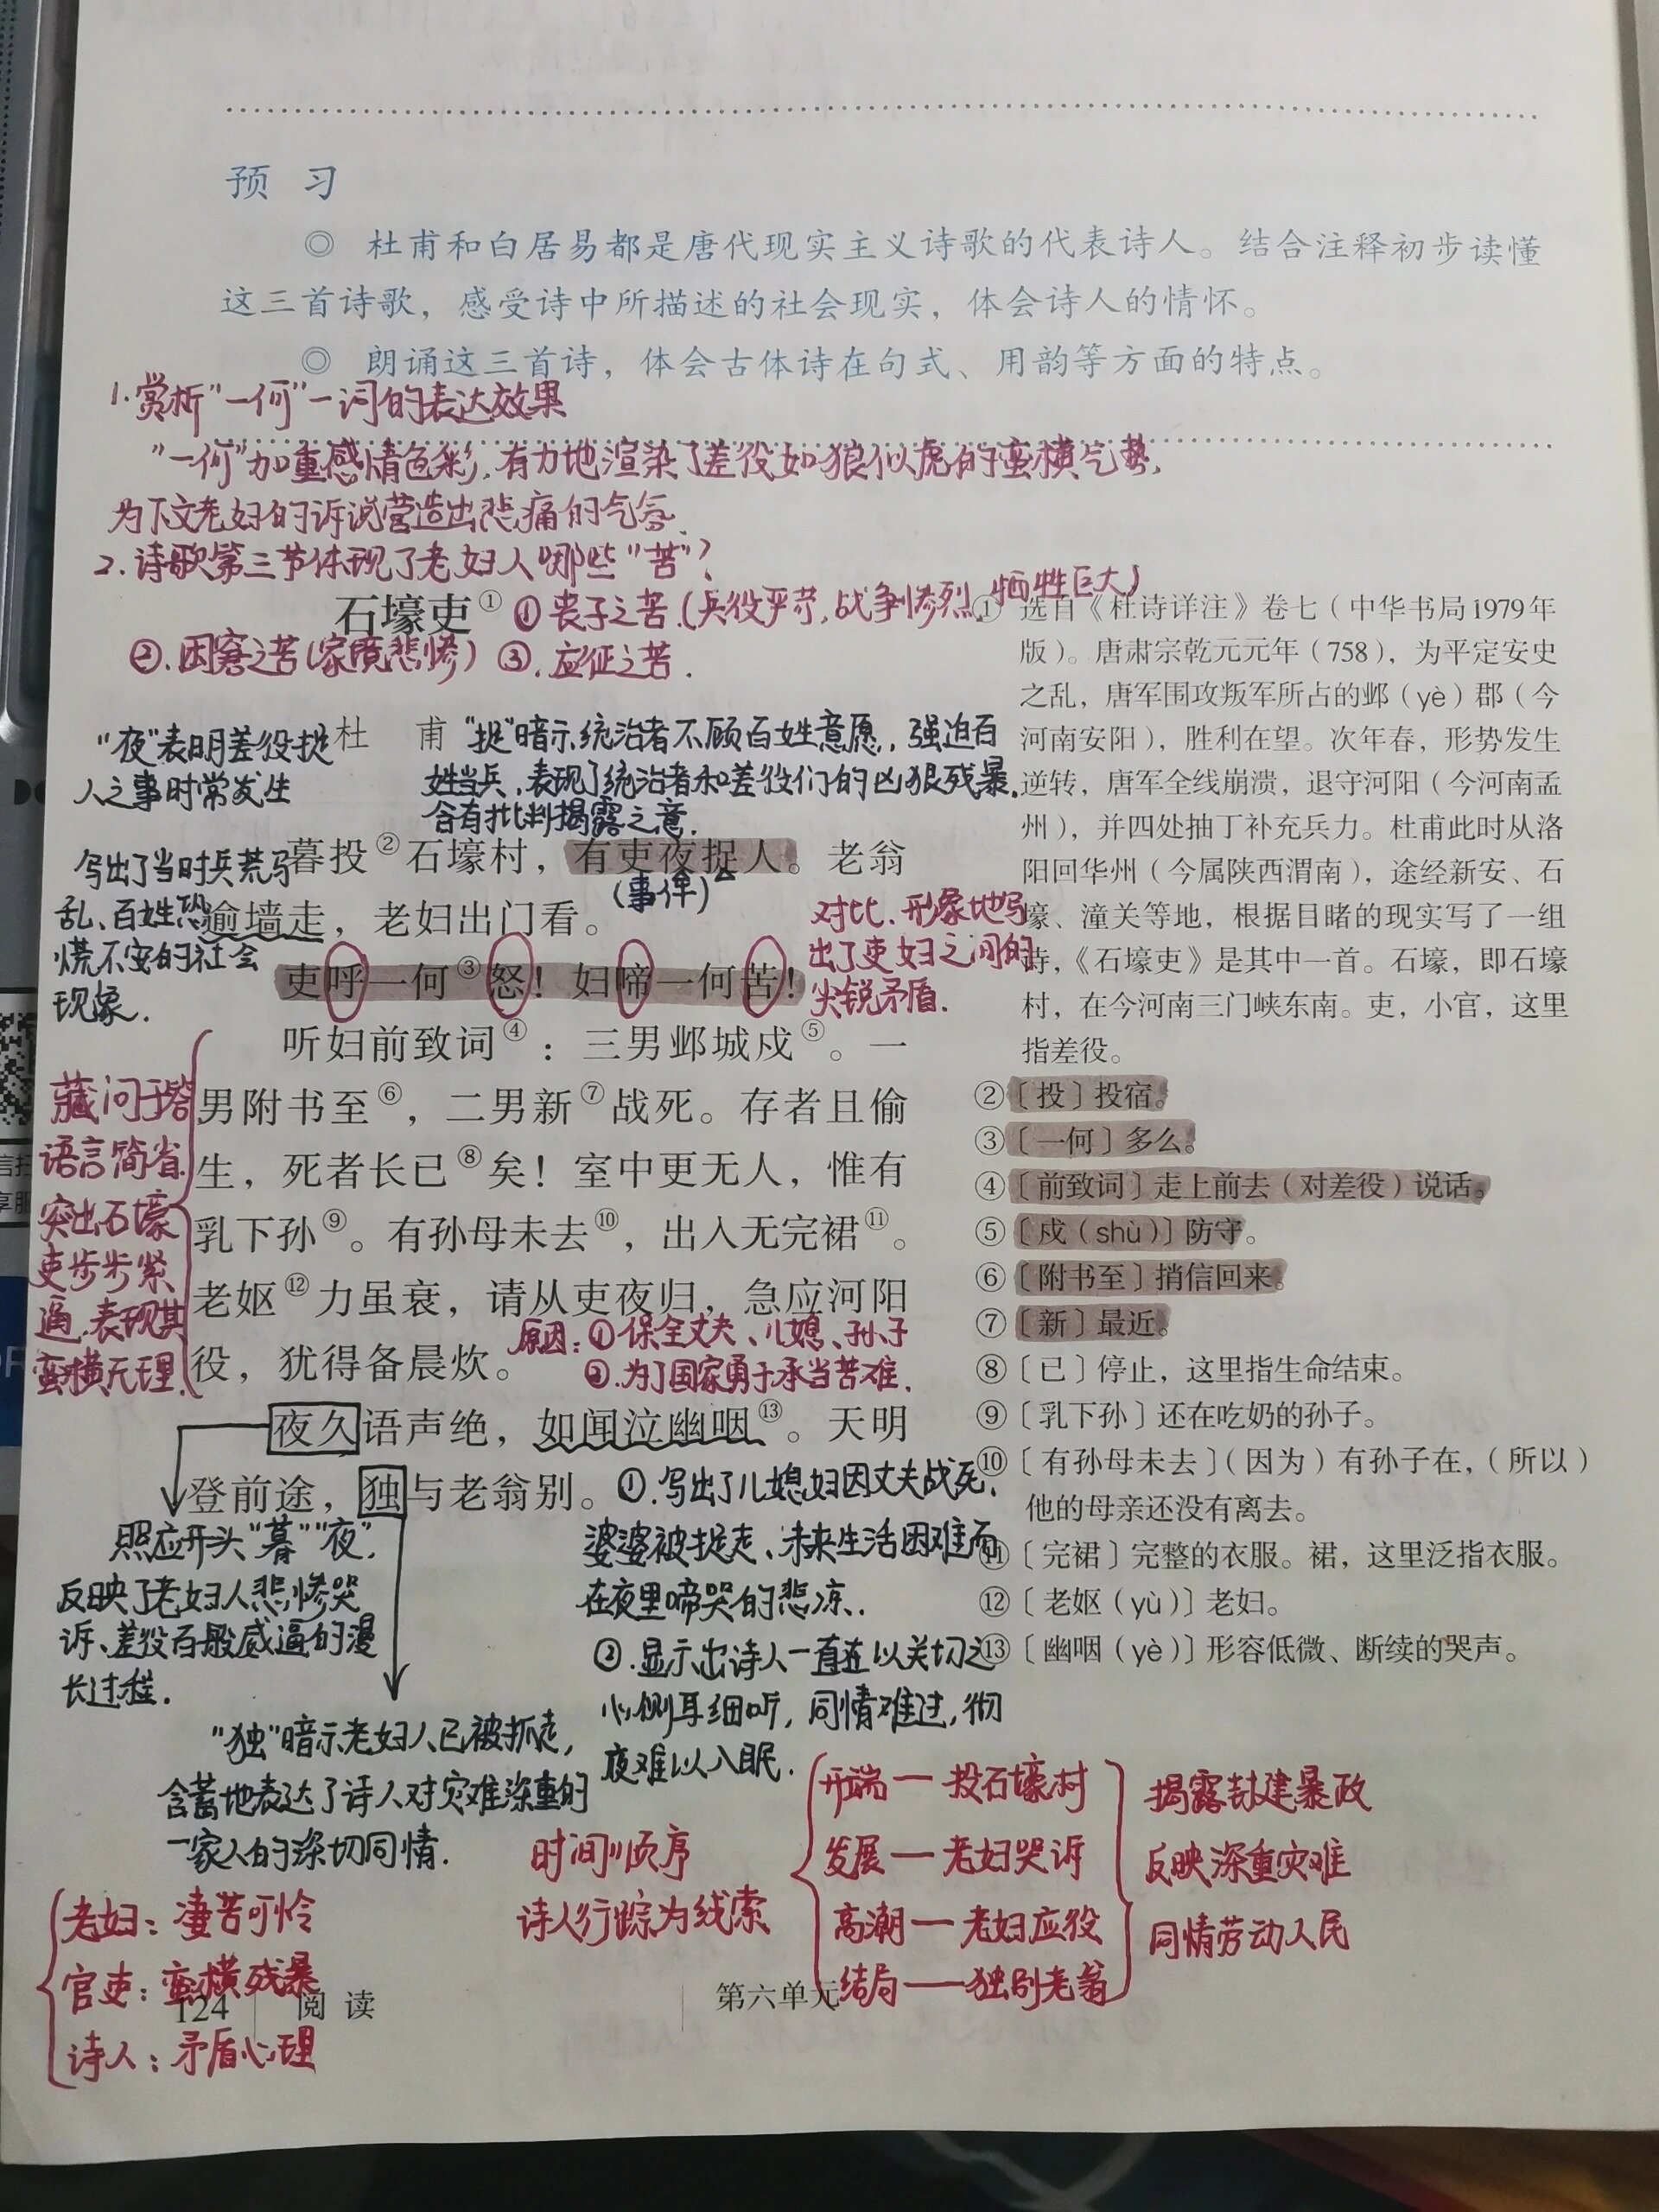 预 习
◎ 杜甫和白居易都是唐代现实主义诗歌的代表诗人。结合注释初步读懂
这三首诗歌，感受诗中所描述的社会现实，体会诗人的情怀。
◎ 朗诵这三首诗，体会古体诗在句式、用韵等方面的特点。
1.赏析"一何"一词的表达效果
"一何"加重感情色彩,有力地渲染了差役如狼似虎的蛮横气势,
为下文老妇的诉说营造出悲痛的气氛.
2.诗歌第三节体现了老妇人哪些"苦"?
石壕吏①
①丧子之苦.(兵役严苛,战争惨烈,牺牲巨大)
②.困窘之苦(家境悲惨) ③.应征之苦.
杜 甫
"夜"表明差役捉
人之事时常发生
"捉"暗示统治者不顾百姓意愿,强迫百
姓当兵,表现了统治者和差役们的凶狠残暴.
含有批判揭露之意.
写出了当时兵荒马
乱、百姓恐
慌不安的社会
现象.
暮投②石壕村，有吏夜捉人。老翁
(事件)
逾墙走，老妇出门看。
对比.形象地写
出了吏妇之间的
尖锐矛盾.
吏呼一何③怒！妇啼一何苦！
听妇前致词④：三男邺城戍⑤。一
男附书至⑥，二男新⑦战死。存者且偷
生，死者长已⑧矣！室中更无人，惟有
乳下孙⑨。有孙母未去⑩，出入无完裙⑪。
老妪⑫力虽衰，请从吏夜归，急应河阳
役，犹得备晨炊。
藏问于答
语言简省
突出石壕
吏步步紧
逼,表现其
蛮横无理.
原因:①保全丈夫、儿媳、孙子
②.为了国家勇于承当苦难.
夜久语声绝，如闻泣幽咽⑬。天明
登前途，独与老翁别。
照应开头"暮""夜",
反映了老妇人悲惨哭
诉、差役百般威逼的漫
长过程.
①.写出了儿媳妇因丈夫战死、
婆婆被捉走、未来生活困难而
在夜里啼哭的悲凉.
②.显示出诗人一直在以关切之
心侧耳细听,同情难过,彻
夜难以入眠.
"独"暗示老妇人已被抓走,
含蓄地表达了诗人对灾难深重的
一家人的深切同情.
①选自《杜诗详注》卷七（中华书局1979年
版）。唐肃宗乾元元年（758），为平定安史
之乱，唐军围攻叛军所占的邺（yè）郡（今
河南安阳），胜利在望。次年春，形势发生
逆转，唐军全线崩溃，退守河阳（今河南孟
州），并四处抽丁补充兵力。杜甫此时从洛
阳回华州（今属陕西渭南），途经新安、石
壕、潼关等地，根据目睹的现实写了一组
诗，《石壕吏》是其中一首。石壕，即石壕
村，在今河南三门峡东南。吏，小官，这里
指差役。
②〔投〕投宿。
③〔一何〕多么。
④〔前致词〕走上前去（对差役）说话。
⑤〔戍（shù）〕防守。
⑥〔附书至〕捎信回来。
⑦〔新〕最近。
⑧〔已〕停止，这里指生命结束。
⑨〔乳下孙〕还在吃奶的孙子。
⑩〔有孙母未去〕（因为）有孙子在，（所以）
他的母亲还没有离去。
⑪〔完裙〕完整的衣服。裙，这里泛指衣服。
⑫〔老妪（yù）〕老妇。
⑬〔幽咽（yè）〕形容低微、断续的哭声。
时间顺序
诗人行踪为线索
开端—投石壕村
发展—老妇哭诉
高潮—老妇应役
结局—独别老翁
揭露封建暴政
反映深重灾难
同情劳动人民
老妇:凄苦可怜
官吏:蛮横残暴
诗人:矛盾心理
124 阅 读
第六单元